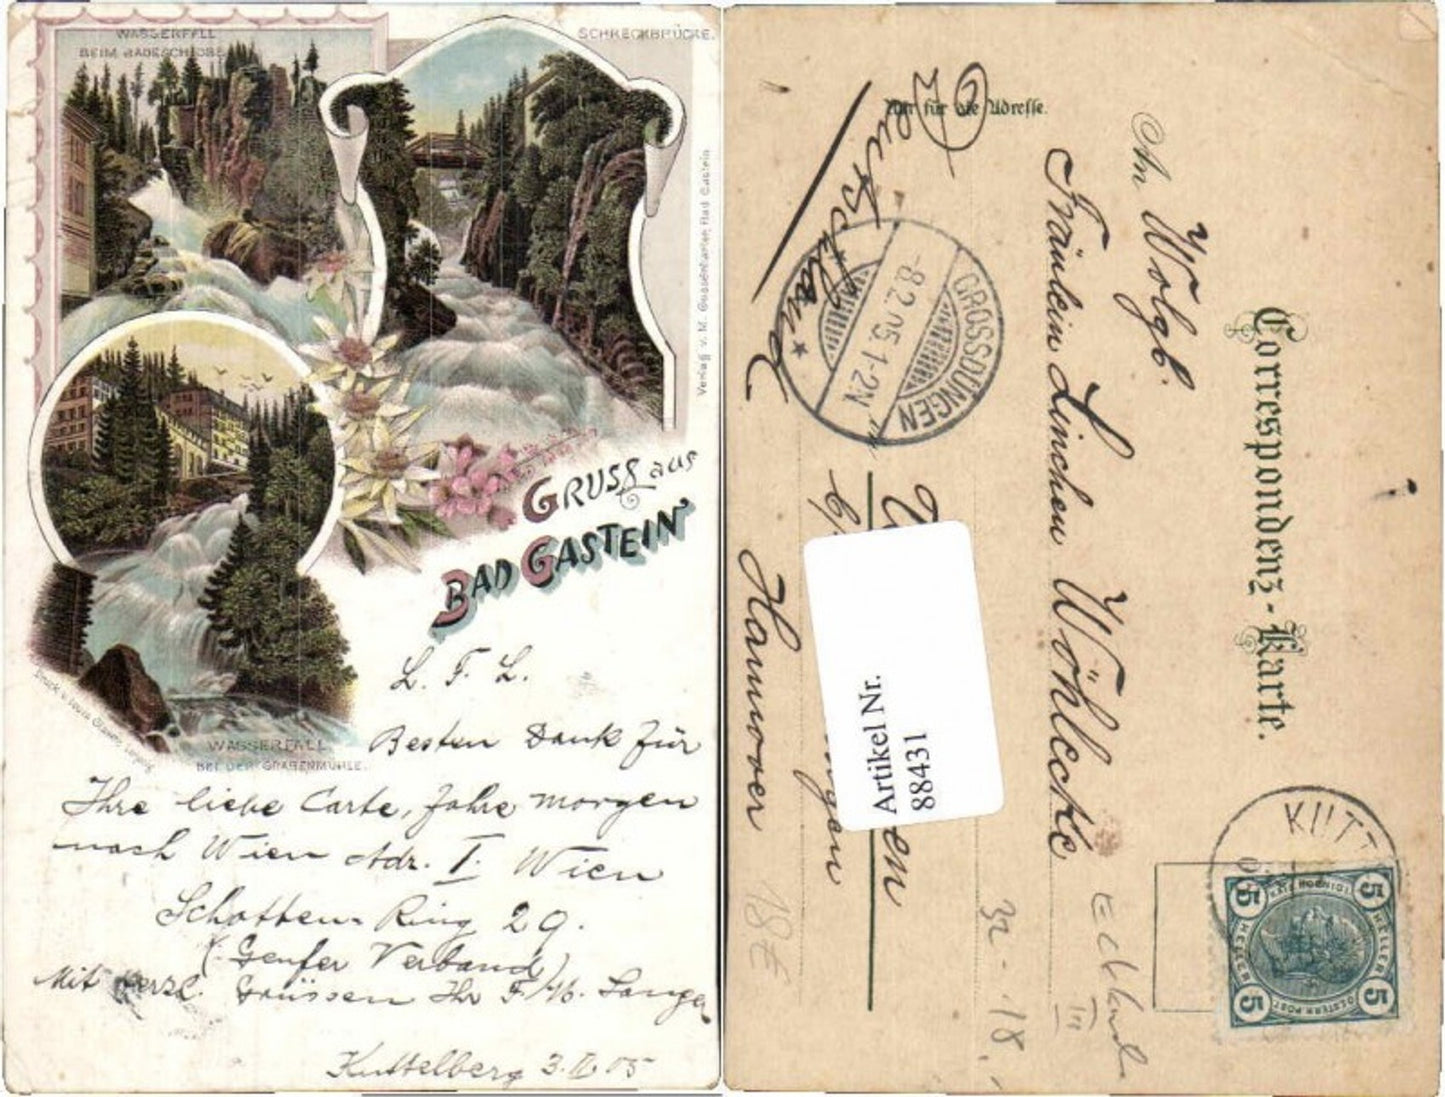 WASSERFALL
BEIM BADESCHLOSS
SCHRECKBRÜCKE.
Verlag v. M. Gussenbauer, Bad Gastein
GRUSS aus
BAD GASTEIN
Druck v. Louis Glaser, Leipzig
WASSERFALL
BEI DER GRABENMÜHLE.
L. F. L.
Besten Dank für
Ihre liebe Carte, fahre morgen
nach Wien Adr. I. Wien
Schotten-Ring 29.
(: Genfer Verband)
Mit herzl. Grüssen Ihr F. Lange
Kuttelberg 3.II.05
Correspondenz-Karte.
Nur für die Adresse.
An Wolgb.
Fräulein Linchen Wöhlecke
in
Hannover
Deutschland
GROSSDÜNGEN
-8.2.05.1-2N
KUTT
5 HELLER 5
Artikel Nr.
88431
32-18.
18€